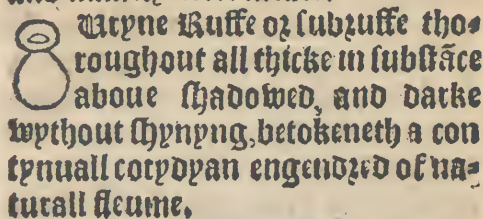 Uryne Ruffe or subruffe tho-
roughout all thicke in substāce
aboue shadowed, and darke
wythout shynyng, betokeneth a con
tynuall cotydyan engendred of na-
turall fleume.